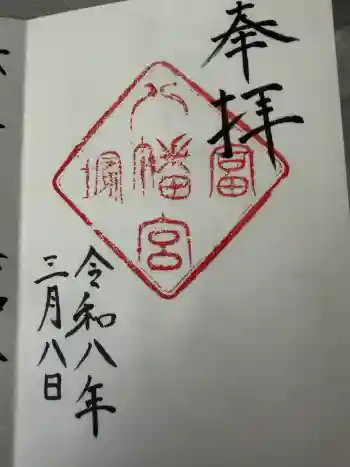 奉拝
富
八幡宮
岡
令和八年
三月八日